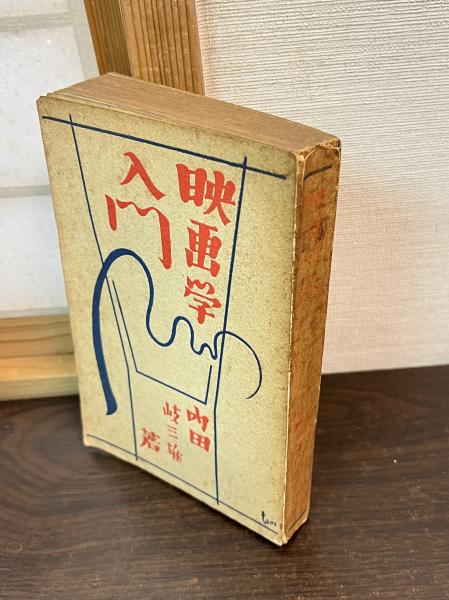 映画学
入門
内田
岐三雄
著